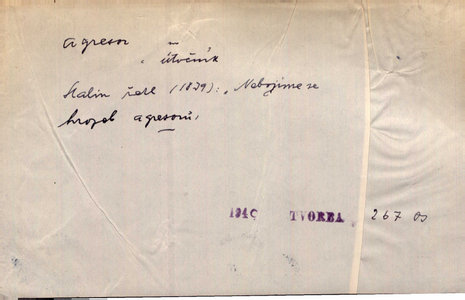 agresor
útočník
Stalin řekl (1879): „Nebojíme se
hrozeb agresorů,
194 TVORBA 267